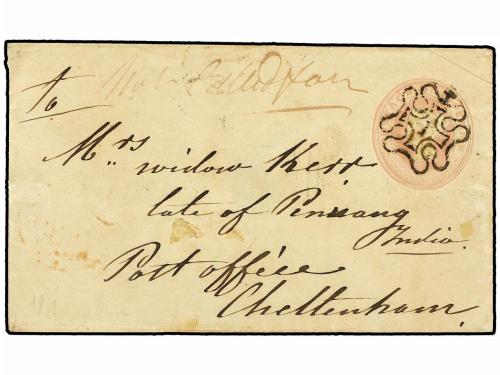 to
Mrs widow Kerr
late of Penang
India
Post office
Cheltenham.